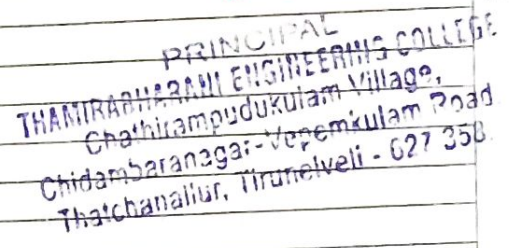 PRINCIPAL
THAMIRABHARANI ENGINEERING COLLEGE
Chathirampudukulam Village,
Chidambaranagar-Vepemkulam Road
Thatchanallur, Tirunelveli - 627 358